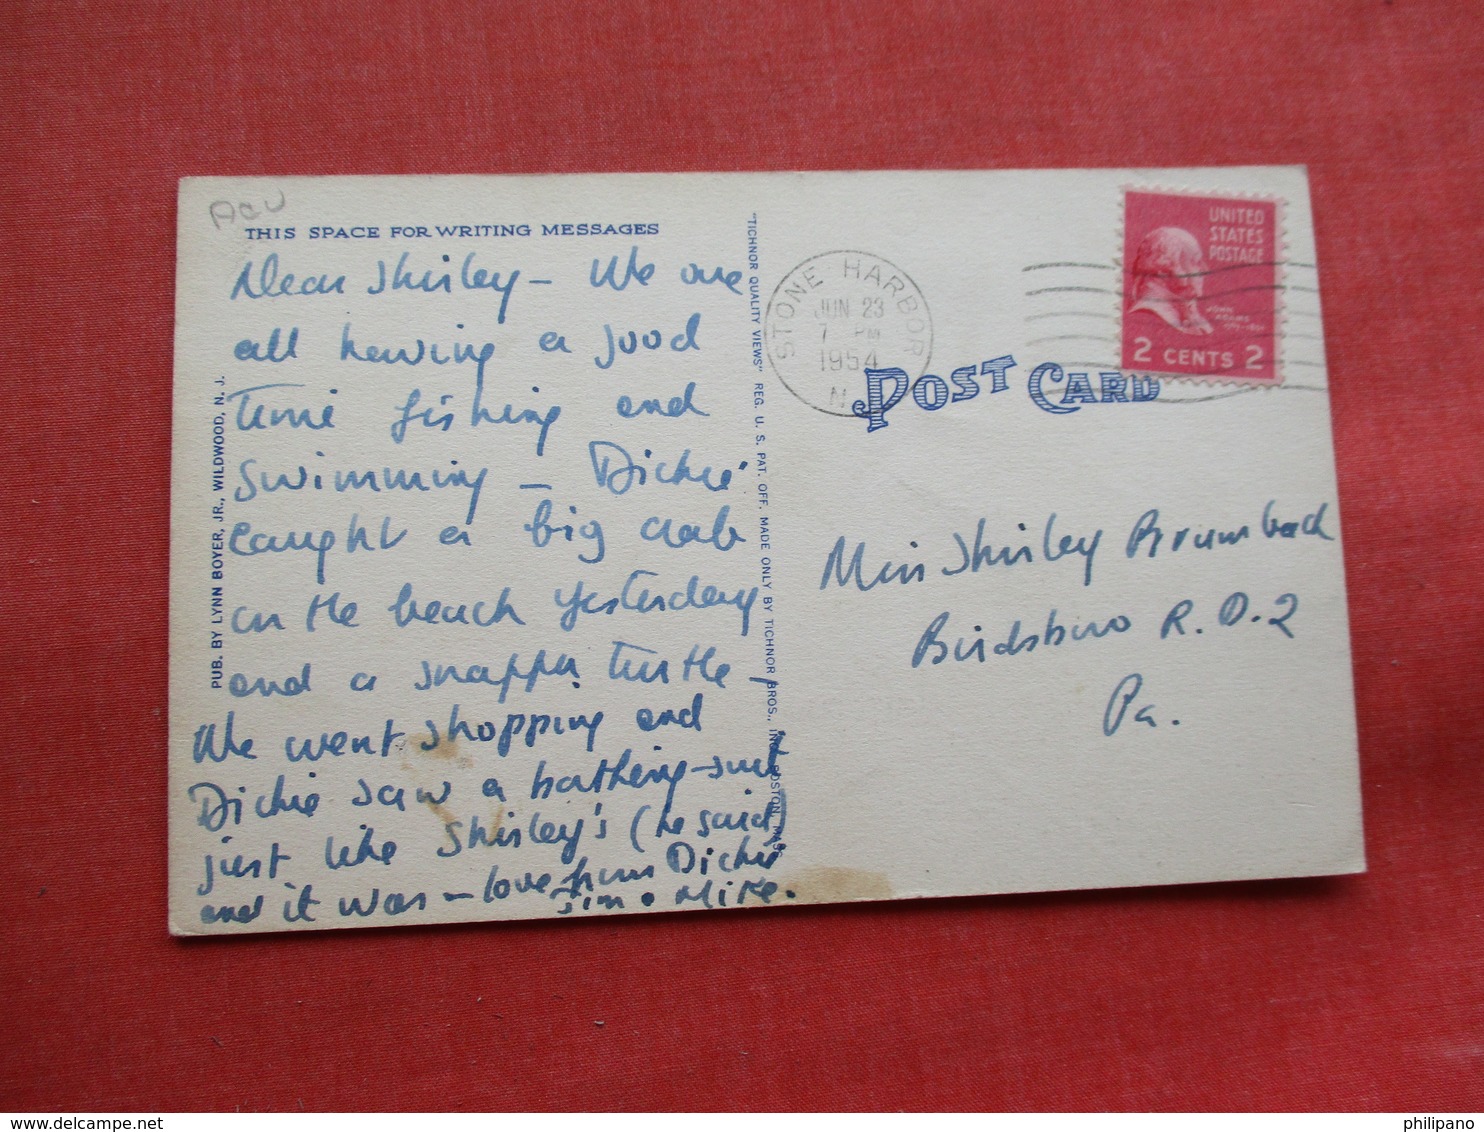 ACU
THIS SPACE FOR WRITING MESSAGES
Dear Shirley – We are
all having a good
time fishing and
swimming – Dickie
caught a big crab
on the beach yesterday
and a snapper turtle –
We went shopping and
Dickie saw a bathing-suit
just like Shirley's (he said)
and it was – love from Dickie
Jim & Mike.
PUB. BY LYNN BOYER, JR., WILDWOOD, N. J.
"TICHNOR QUALITY VIEWS" REG. U. S. PAT. OFF. MADE ONLY BY TICHNOR BROS., INC. BOSTON, MASS.
STONE HARBOR
JUN 23
7 PM
1954
N.
UNITED
STATES
POSTAGE
JOHN
ADAMS
2 CENTS 2
POST CARD
Miss Shirley Brumbach
Birdsboro R.D.2
Pa.
philipano
www.delcampe.net